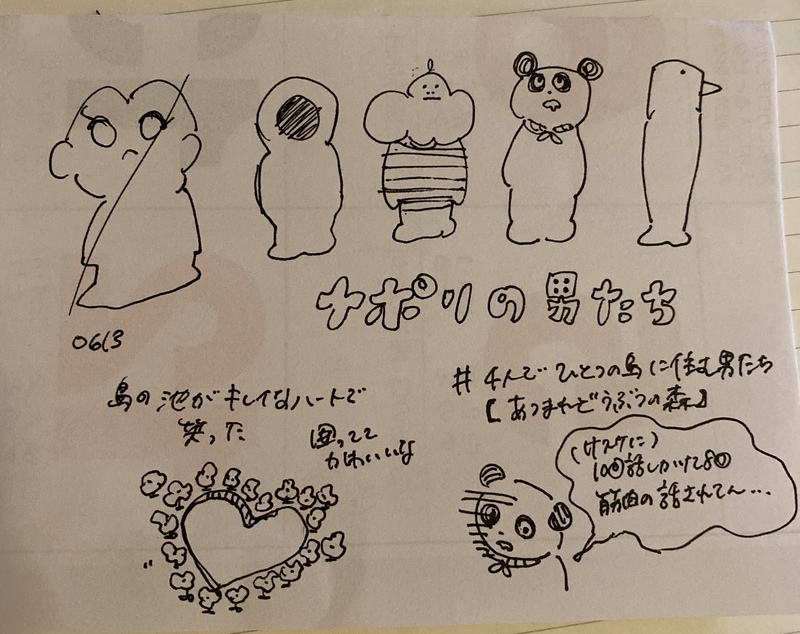 0613
ナポリの男たち
島の池がキレイなハートで
笑った
囲ってて
かわいいな
# 4人でひとつの島に住む男たち
【あつまれどうぶつの森】
(サスケに)
10回話しかけて8回
筋肉の話されてん…